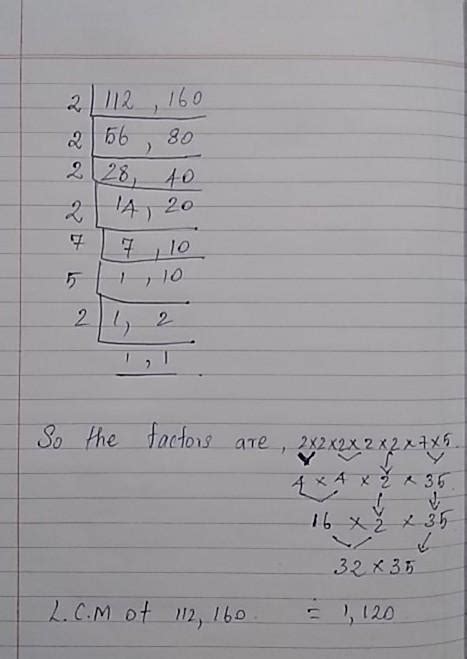 2 | 112 , 160
2 | 56 , 80
2 | 28, 40
2 | 14, 20
7 | 7 , 10
5 | 1 , 10
2 | 1, 2
1 , 1
So the factors are, 2×2×2×2×2×7×5.
4 × 4 × 2 × 35
16 × 2 × 35
32 × 35
L.C.M of 112, 160. = 1,120